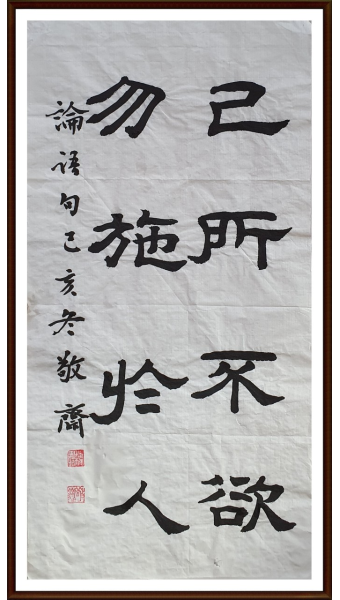 己所不欲
勿施於人
論语句己亥冬敬齋